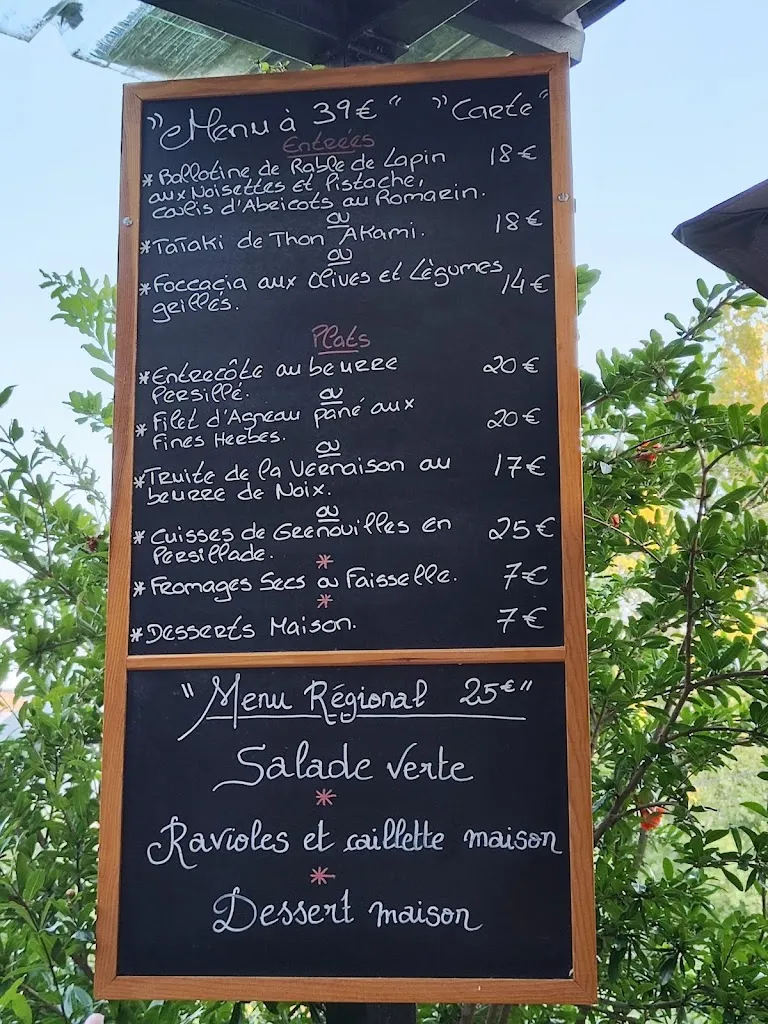 "Menu à 39€" "Carte"
Entrées
* Ballotine de Rable de Lapin 18€
aux Noisettes et Pistache,
coulis d'Abricots au Romarin.
ou
* Tataki de Thon Akami. 18€
ou
* Foccacia aux Olives et Légumes 14€
grillés.
Plats
* Entrecôte au beurre 20€
Persillé.
ou
* Filet d'Agneau pané aux 20€
Fines Herbes.
ou
* Truite de la Vernaison au 17€
beurre de Noix.
ou
* Cuisses de Grenouilles en 25€
Persillade.
*
* Fromages Secs ou Faisselle. 7€
*
* Desserts Maison. 7€
"Menu Régional 25€"
Salade verte
*
Ravioles et caillette maison
*
Dessert maison